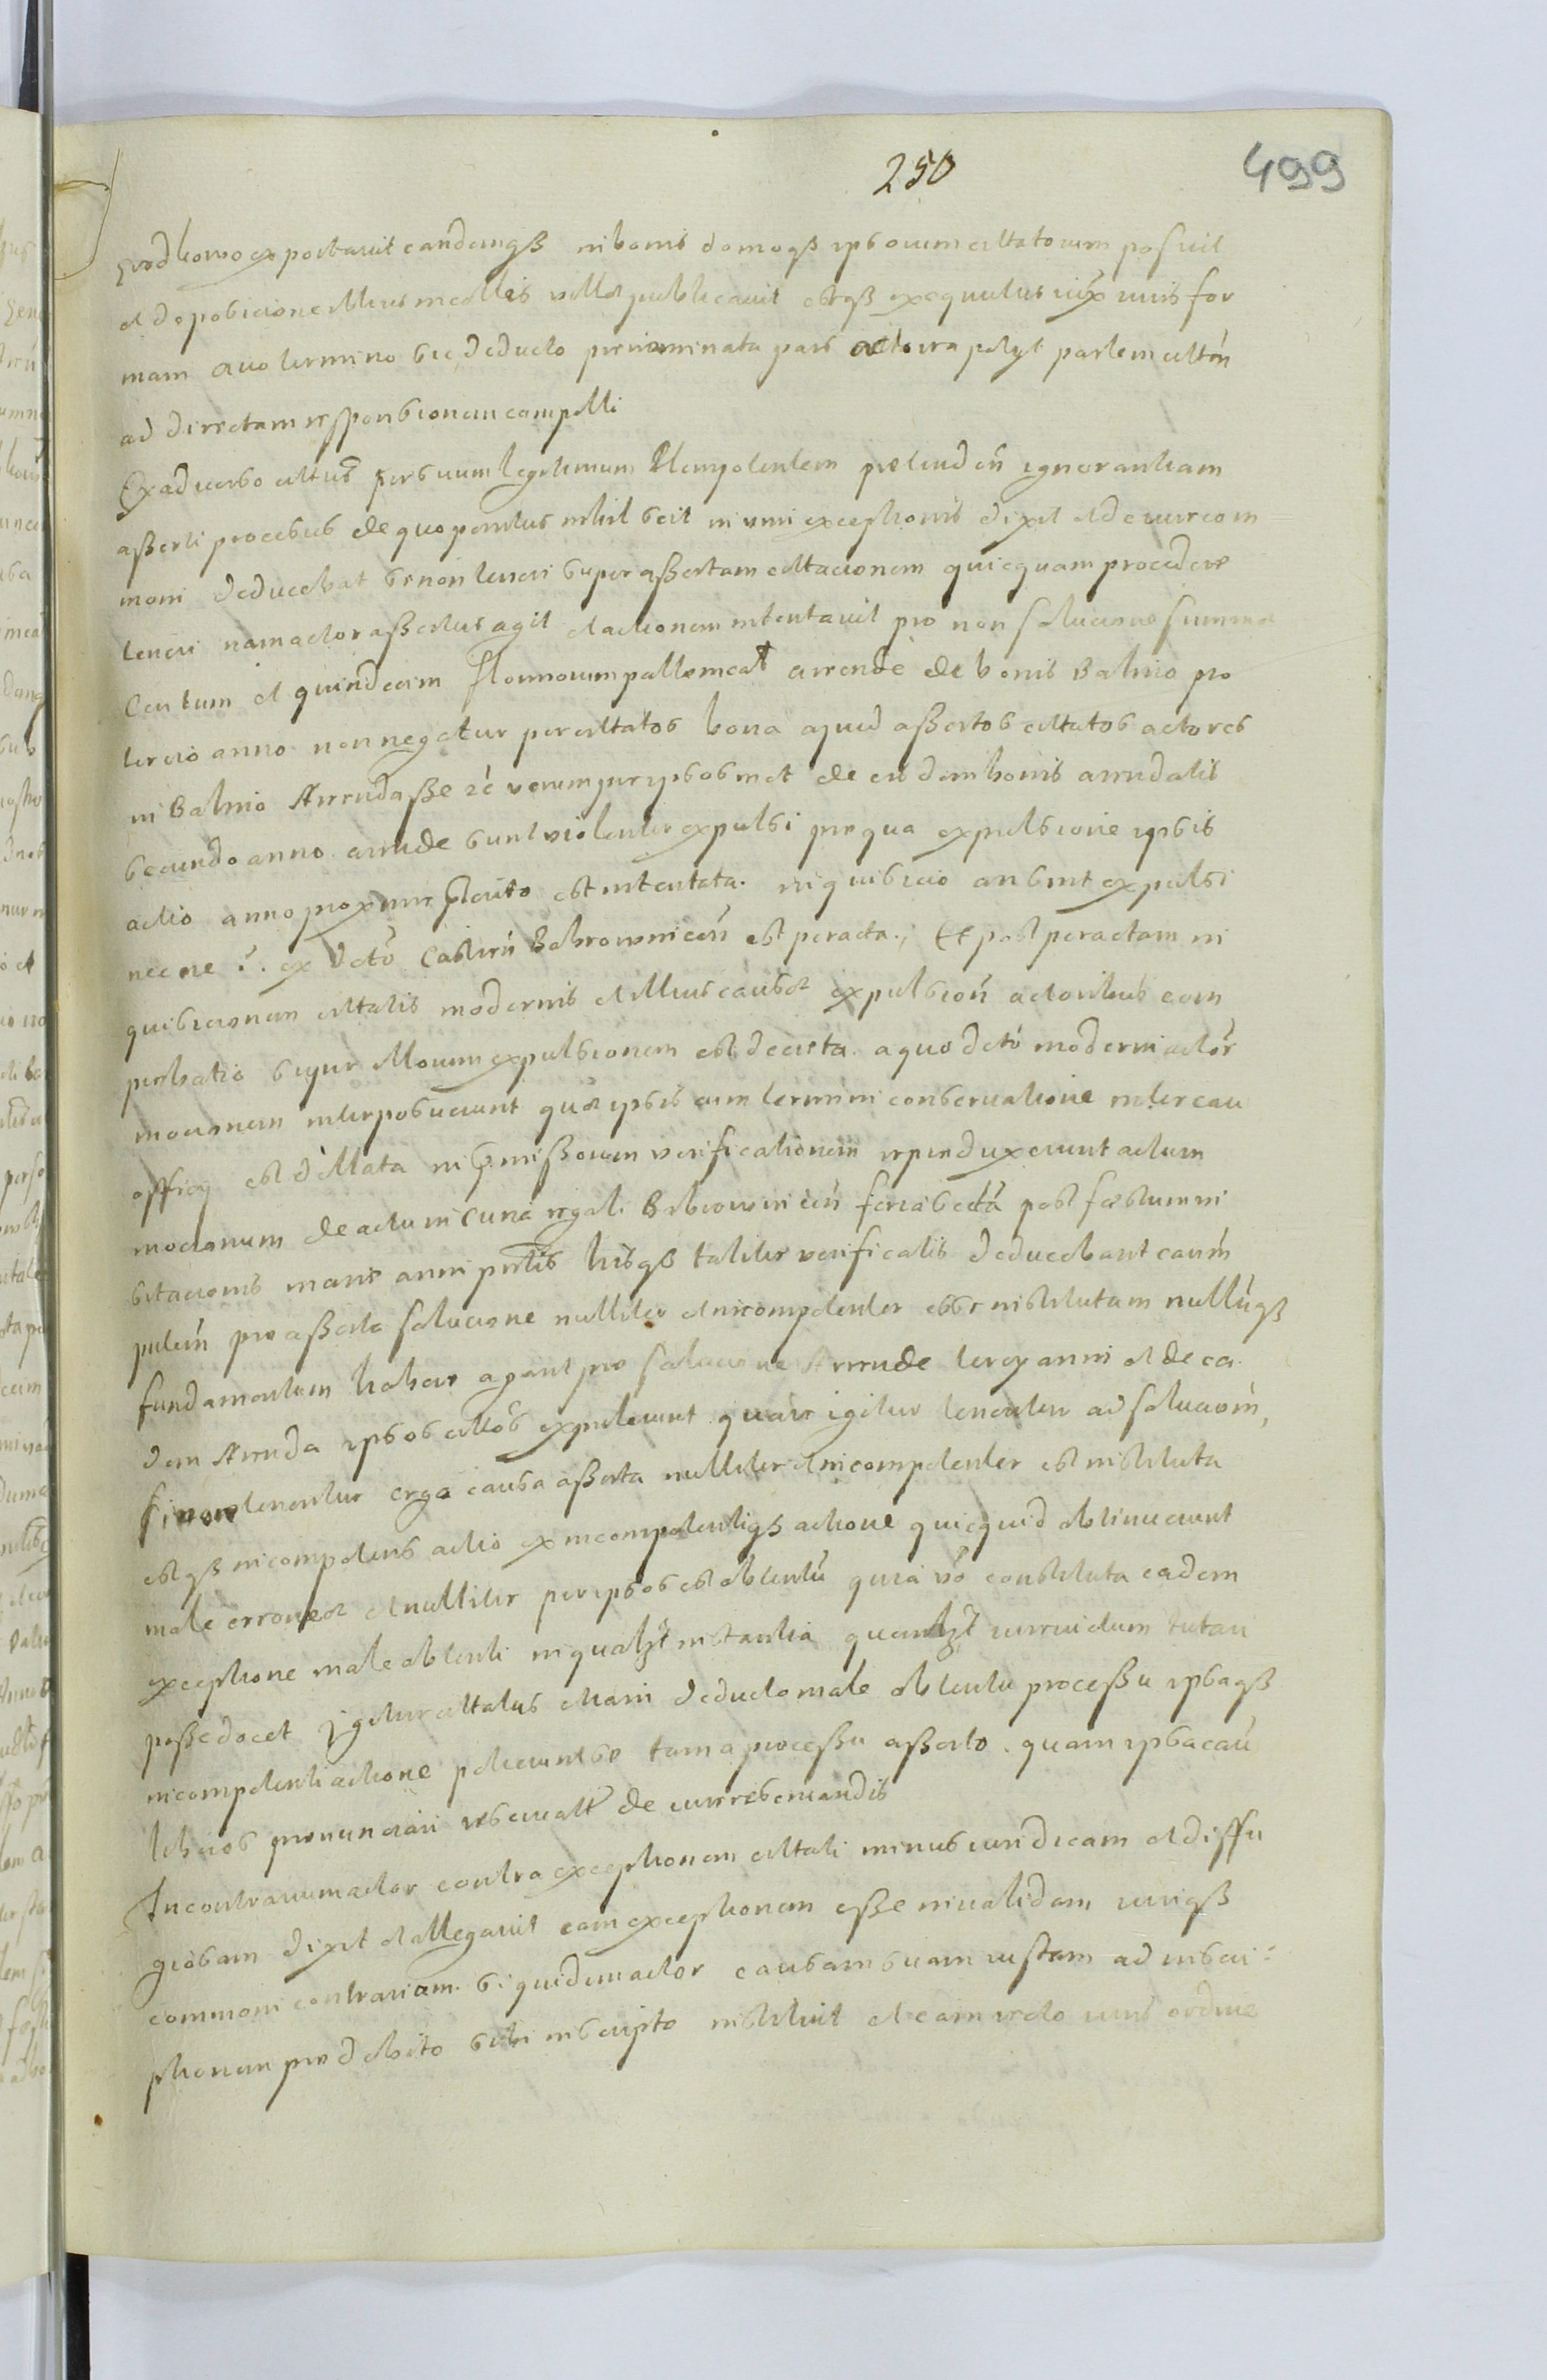 250
499
exportavit eandemqß in bonis domoqß ipsorum citatorum posuit
et de posicione illius incolis villæ publicavit estqß exequutus iux iuris for
mam quo termino sic deducto prenominata pars actorea petyt partem citatn
ad directam responsionem compelli
Ex adverso citatus per suum legitimum Plenipotentem pretenden ignorantiam
asserti processus de quo penitus nihil scit in vim exceptionis dixit et de iure com
moni deducebat se non teneri super assertam citacionem quicquam procedere
teneri nam actor assertus agit et actionem intentavit pro non solucione summæ
Centum et quindecim florenorum pallemcat arrende de bonis Balnio pro
tercio anno non negetur per citatos bona apud assertos citatos actores
in Balnio Arrendasse et verum per ipsosmet de eisdem bonis arrendatis
secundo anno arrende sunt violenter expulsi pro qua expulsione ipsis
actio anno proxime preterito est intentata. inquisicio an sint expulsi
nec ne. ex dcto Castrn Sanocn est peracta. Et post peractam in
quisicionem citatis modernis et illius causæ expulsion actoribus com
probatio super illorum expulsionem est decreta. a quo dcto moderni actor
mocionem interposuerunt quæ ipsis cum termini conservatione inter cau
officy est dellata in premissorum verificationem reproduxerunt actum
mocionum de actu in Curia regali feria secda post festum in
vitacionis mariæ anni pntis hisqß taliter verificatis deducebant causm
putem pro asserta solucione nulliter et incompetenter esse institutam nullumqß
fundamentum habere agant pro solucione Arrende tercy anni et de ea
dem Arrenda ipsos actos expulerunt quare igitur tenentur ad solucionm,
Si non tenentur ergo causa asserta nulliter et incompetenter est instituta
estqß incompetens actio ex incompetentiqß actione quicquid obtinuerunt
male erroneæ et nulliter per ipsos est obtentu quia vo constituta eadem
exceptione male obtenti in qualibet instantia quemlibet iurevictum tutari
posse docet Igitur citatus etiam deducto male obtento processu ipsaqß
incompetenti actione petierunt se tam a processu asserto. quam ipsa cau
liberos pronunciari reservatr de iure reservandis
In contrarium actor contra exceptionem citati minus iuridicam et diffu
giosam dixit et allegavit eam exceptionem esse invalidam iuriqß
commoni contrariam. siquidem actor causam suam iustam ad inscri
ptionem pro debito sibi inscripto instituit et eam recto iuris ordine